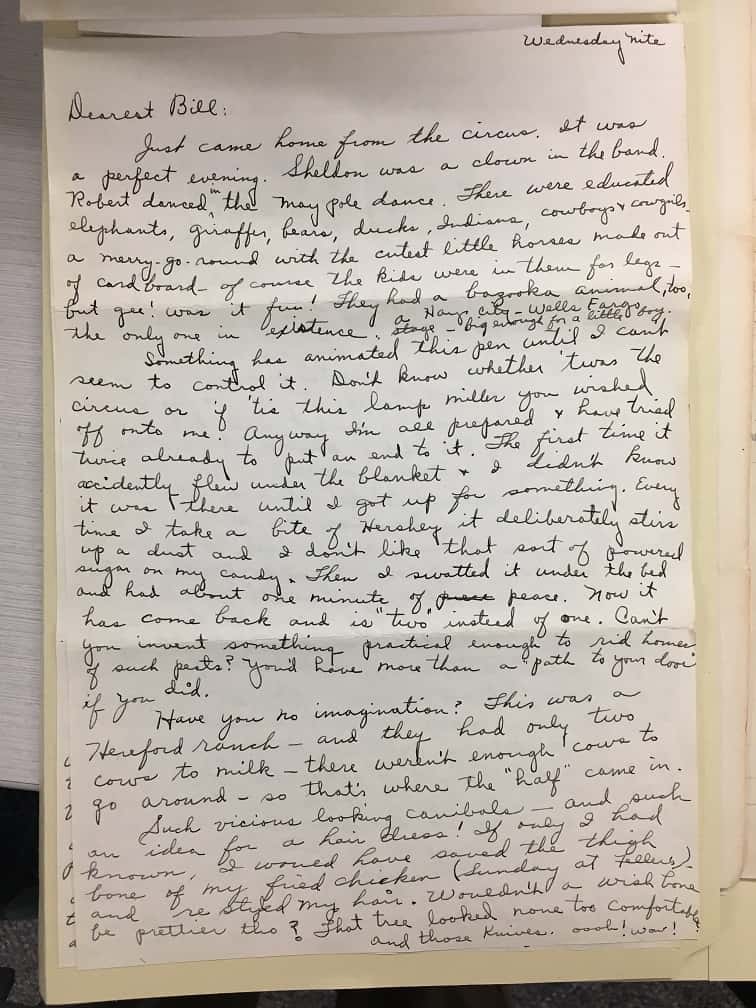 Wednesday nite
Dearest Bill:
Just came home from the circus. It was
a perfect evening. Sheldon was a clown in the band.
Robert danced in the may pole dance. There were educated
elephants, giraffes, bears, ducks, Indians, cowboys & cowgirls
a merry-go-round with the cutest little horses made out
of cardboard - of course the kids were in them for legs -
but gee! was it fun! They had a bazooka animal, too,
the only one in existence. a Hays city - Wells Fargo
stage - big enough for a little boy.
Something has animated this pen until I can't
seem to control it. Don't know whether 'twas the
circus or if 'tis this lamp miller you wished
off onto me. Anyway I'm all prepared & have tried
twice already to put an end to it. The first time it
accidently flew under the blanket & I didn't know
it was there until I got up for something. Every
time I take a bite of Hershey it deliberately stirs
up a dust and I don't like that sort of powered
sugar on my candy. Then I swatted it under the bed
and had about one minute of peace. Now it
has come back and is "two" instead of one. Can't
you invent something practical enough to rid homes
of such pests? You'd have more than a "path to your door"
if you did.
Have you no imagination? This was a
Hereford ranch - and they had only two
cows to milk - there weren't enough cows to
go around - so that's where the "half" came in.
Such vicious looking canibals - and such
an idea for a hair dress! If only I had
known, I would have saved the thigh
bone of my fried chicken (Sunday at Fellers)
and 're styled my hair. Wouldn't a wish bone
be prettier tho? That tree looked none too comfortable
and those knives. oooh! wow!